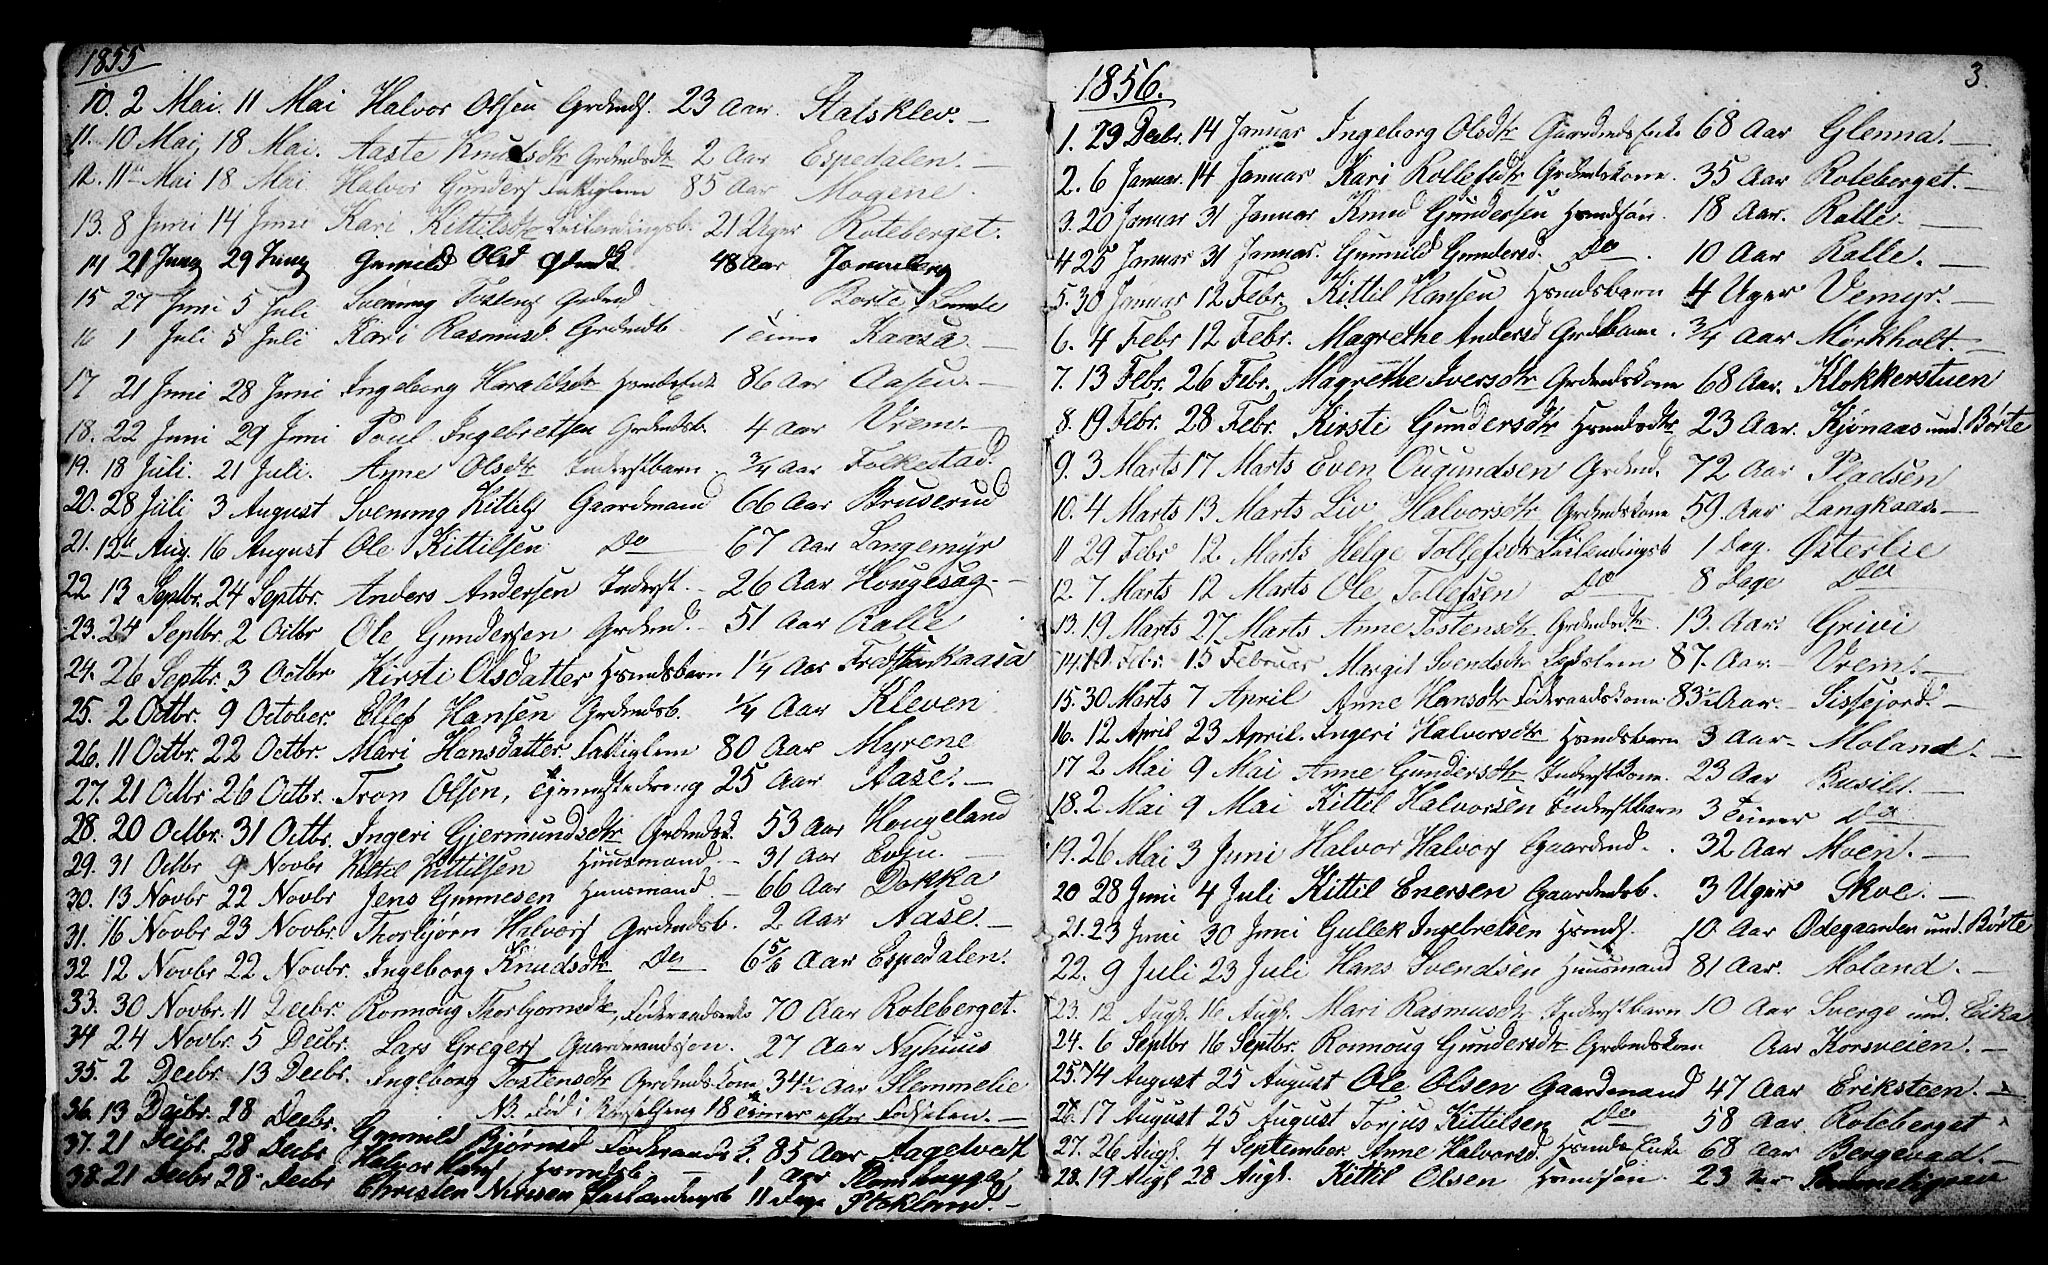 1855
10. 2 Mai. 11 Mai Halvor Olsen Grdmds. 23 Aar. Stalsklev. —
11. 10 Mai, 18 Mai. Aaste Knudsdtr Grdmdsdtr 2 Aar Espedalen. —
12. 11te Mai 18 Mai Halvor Gunders Fattiglem 85 Aar Mogene.
13. 8 Juni 14 Juni Kari Kittilsdtr Leilendingsb. 21 Uger Roteberget.
14 21 Juny 29 Juny Gunild Olsd 48 Aar
15 27 Juni 5 Juli Svening Tostens Grdmd Børte
16 1 Juli 5 Juli Kari Rasmusd. Grdmdb. 1 Time Kaasa. —
17 21 Juni 28 Juni Ingeborg Haraldsdtr 86 Aar Aasen. —
18. 22 Juni 29 Juni Poul Ingebretsen Grdmdsb. 4 Aar Vrem. —
19. 18 Juli. 21 Juli. Anne Olsdtr Inderstbarn 3/4 Aar Folkestad.
20. 28 Juli 3 August Svening Kittils Gaardmand 66 Aar Bruserud
21. 12te Aug. 16 August Ole Kittilsen Do 67 Aar Langemyr
22 13 Septbr. 24 Septbr. Anders Andersen Inderst. — 26 Aar Hougesag. —
23. 24 Septbr. 2 Octbr Ole Gundersen Grdmd. — 51 Aar Ralle
24. 26 Septbr. 3 Octbr Kirsti Olsdatter Hsmdsbarn 1 1/4 Aar Kaasa
25. 2 Octbr. 9 October. Ellef Hansen Grdmdsb. 1/4 Aar Kleven
26. 11 Octbr. 22 Octbr. Mari Hansdatter Fattiglem 80 Aar Myrene
27. 21 Octbr 26 Octbr. Tron Olsen, Tjenestedreng 25 Aar Aase. —
28. 20 Octbr. 31 Octbr. Ingeri Gjermundsdtr Grdmdsk. 53 Aar Hougeland
29. 31 Octbr 9 Novbr Kittil Kittilsen Huusmand. — 31 Aar Evju. —
30. 13 Novbr 22 Novbr Jens Gunnesen Huusmand — 66 Aar Dokka
31. 16 Novbr 23 Novbr. Thorbjørn Halvors Grdmdsb. 2 Aar Aase. —
32 12 Novbr 22 Novbr. Ingeborg Knudsdtr Do 6 5/6 Aar Espedalen.
33. 30 Novbr. 11 Decbr. Ronnoug Thorbjørnsdtr, Føderaadsenke 70 Aar Roteberget.
34 24 Novbr. 5 Decbr. Lars Gregers Gaardmandssøn. 27 Aar Nyhuus
35. 2 Decbr. 13 Decbr. Ingeborg Tostensdtr Grdmdskone 34 1/2 Aar Slemmelie
NB. død i Barselseng 18 Timer efter Fødselen. —
36. 13 Decbr. 28 Decbr. Gunnild Bjørnsd Føderaadsk. 85 Aar Aagetvedt
37. 21 Decbr. 28 Decbr Halvor Hans. Hsmdsb. — 1 Aar
38. 21 Decbr 28 Decbr Christen Nirisen Leilendingsb 11 Dage Stoklund. —
1856.
3.
1. 29 Decbr. 14 Januar Ingeborg Olsdtr Gaardmds Enke 68 Aar Glenna. —
2. 6 Januar. 14 Januar Kari Rollefsdtr Grdmdskone. 35 Aar Roteberget. —
3. 20 Januar 31 Januar Knud Gundersen Hsmdsøn. 18 Aar. Ralle —
4 25 Januar 31 Januar. Gunnild Gundersd. Do. 10 Aar Ralle. —
5. 30 Januar 12 Febr. Kittil Hansen Hsmdsbarn 4 Uger Vemyr. —
6. 4 Febr 12 Febr. Magrethe Andersd Grdmdbarn. 3/4 Aar Mørkholt. —
7. 13 Febr. 26 Febr. Magrethe Iversdtr Grdmdskone 68 Aar. Klokkerstuen
8. 19 Febr. 28 Febr. Kirsti Gundersdtr Hsmdsdtr 23 Aar. Kjønaas und. Børte
9. 3 Marts 17 Marts Even Ougundsen Grdmd. 72 Aar Pladsen
10. 4 Marts 13 Marts Liv Halvorsdtr Grdmdskone 59 Aar Langkaas. —
11 29 Febr 12 Marts Helge Tollefsdtr Leilendingsb 1 Dag. Østerlie
12. 7 Marts 12 Marts Ole Tollefsen Do 8 Dage Do
13. 19 Marts 27 Marts Anne Tostensdtr Grdmdsdtr. 13. Aar. Grivi
14. Febr. 15 Februar Margit Svendsdtr 87. Aar — Vrem. —
15. 30 Marts 7 April Anne Hansdtr Føderaadskone 83 1/2 Aar. — Sissejord. —
16. 12 April 23 April. Ingeri Halvorsdtr Hsmdsbarn 3 Aar — Moland. —
17 2 Mai 9 Mai Anne Gundersdtr Inderstkone. 23 Aar Busil. —
18. 2 Mai 9 Mai Kittil Halvorsen Inderstbarn 3 Timer Do
19. 26 Mai 3 Juni Halvor Halvors Gaardmd. 32 Aar Moen. —
20 28 Juni 4 Juli Kittil Enersen Gaardmdsb. 3 Uger Skoe. —
21. 23 Juni 30 Juni Gullek Ingebretsen Hsmds. 10 Aar Ødegaarden und. Børte
22. 9 Juli 23 Juli Hans Svendsen Huusmand 81 Aar. Moland. —
23. 12 Augs. 16 Augs. Mari Rasmusdtr Inderstbarn 10 Aar Sverge und. Eika
24. 6 Septbr 16 Septbr. Ronnoug Gundersdtr Grdmdskone Aar Korsveien. —
25. 14 August 25 August Ole Olsen Gaardmand 47 Aar Eriksteen. —
26. 17 August 25 August Torjus Kittilsen Do 58 Aar. Roteberget
27. 26 Augs. 4 September. Anne Halvorsd. Hsmds Enke 68 Aar Bergevad. —
28. 19 Augs 28 Augs. Kittil Olsen Hsmdsøn 23 Aar